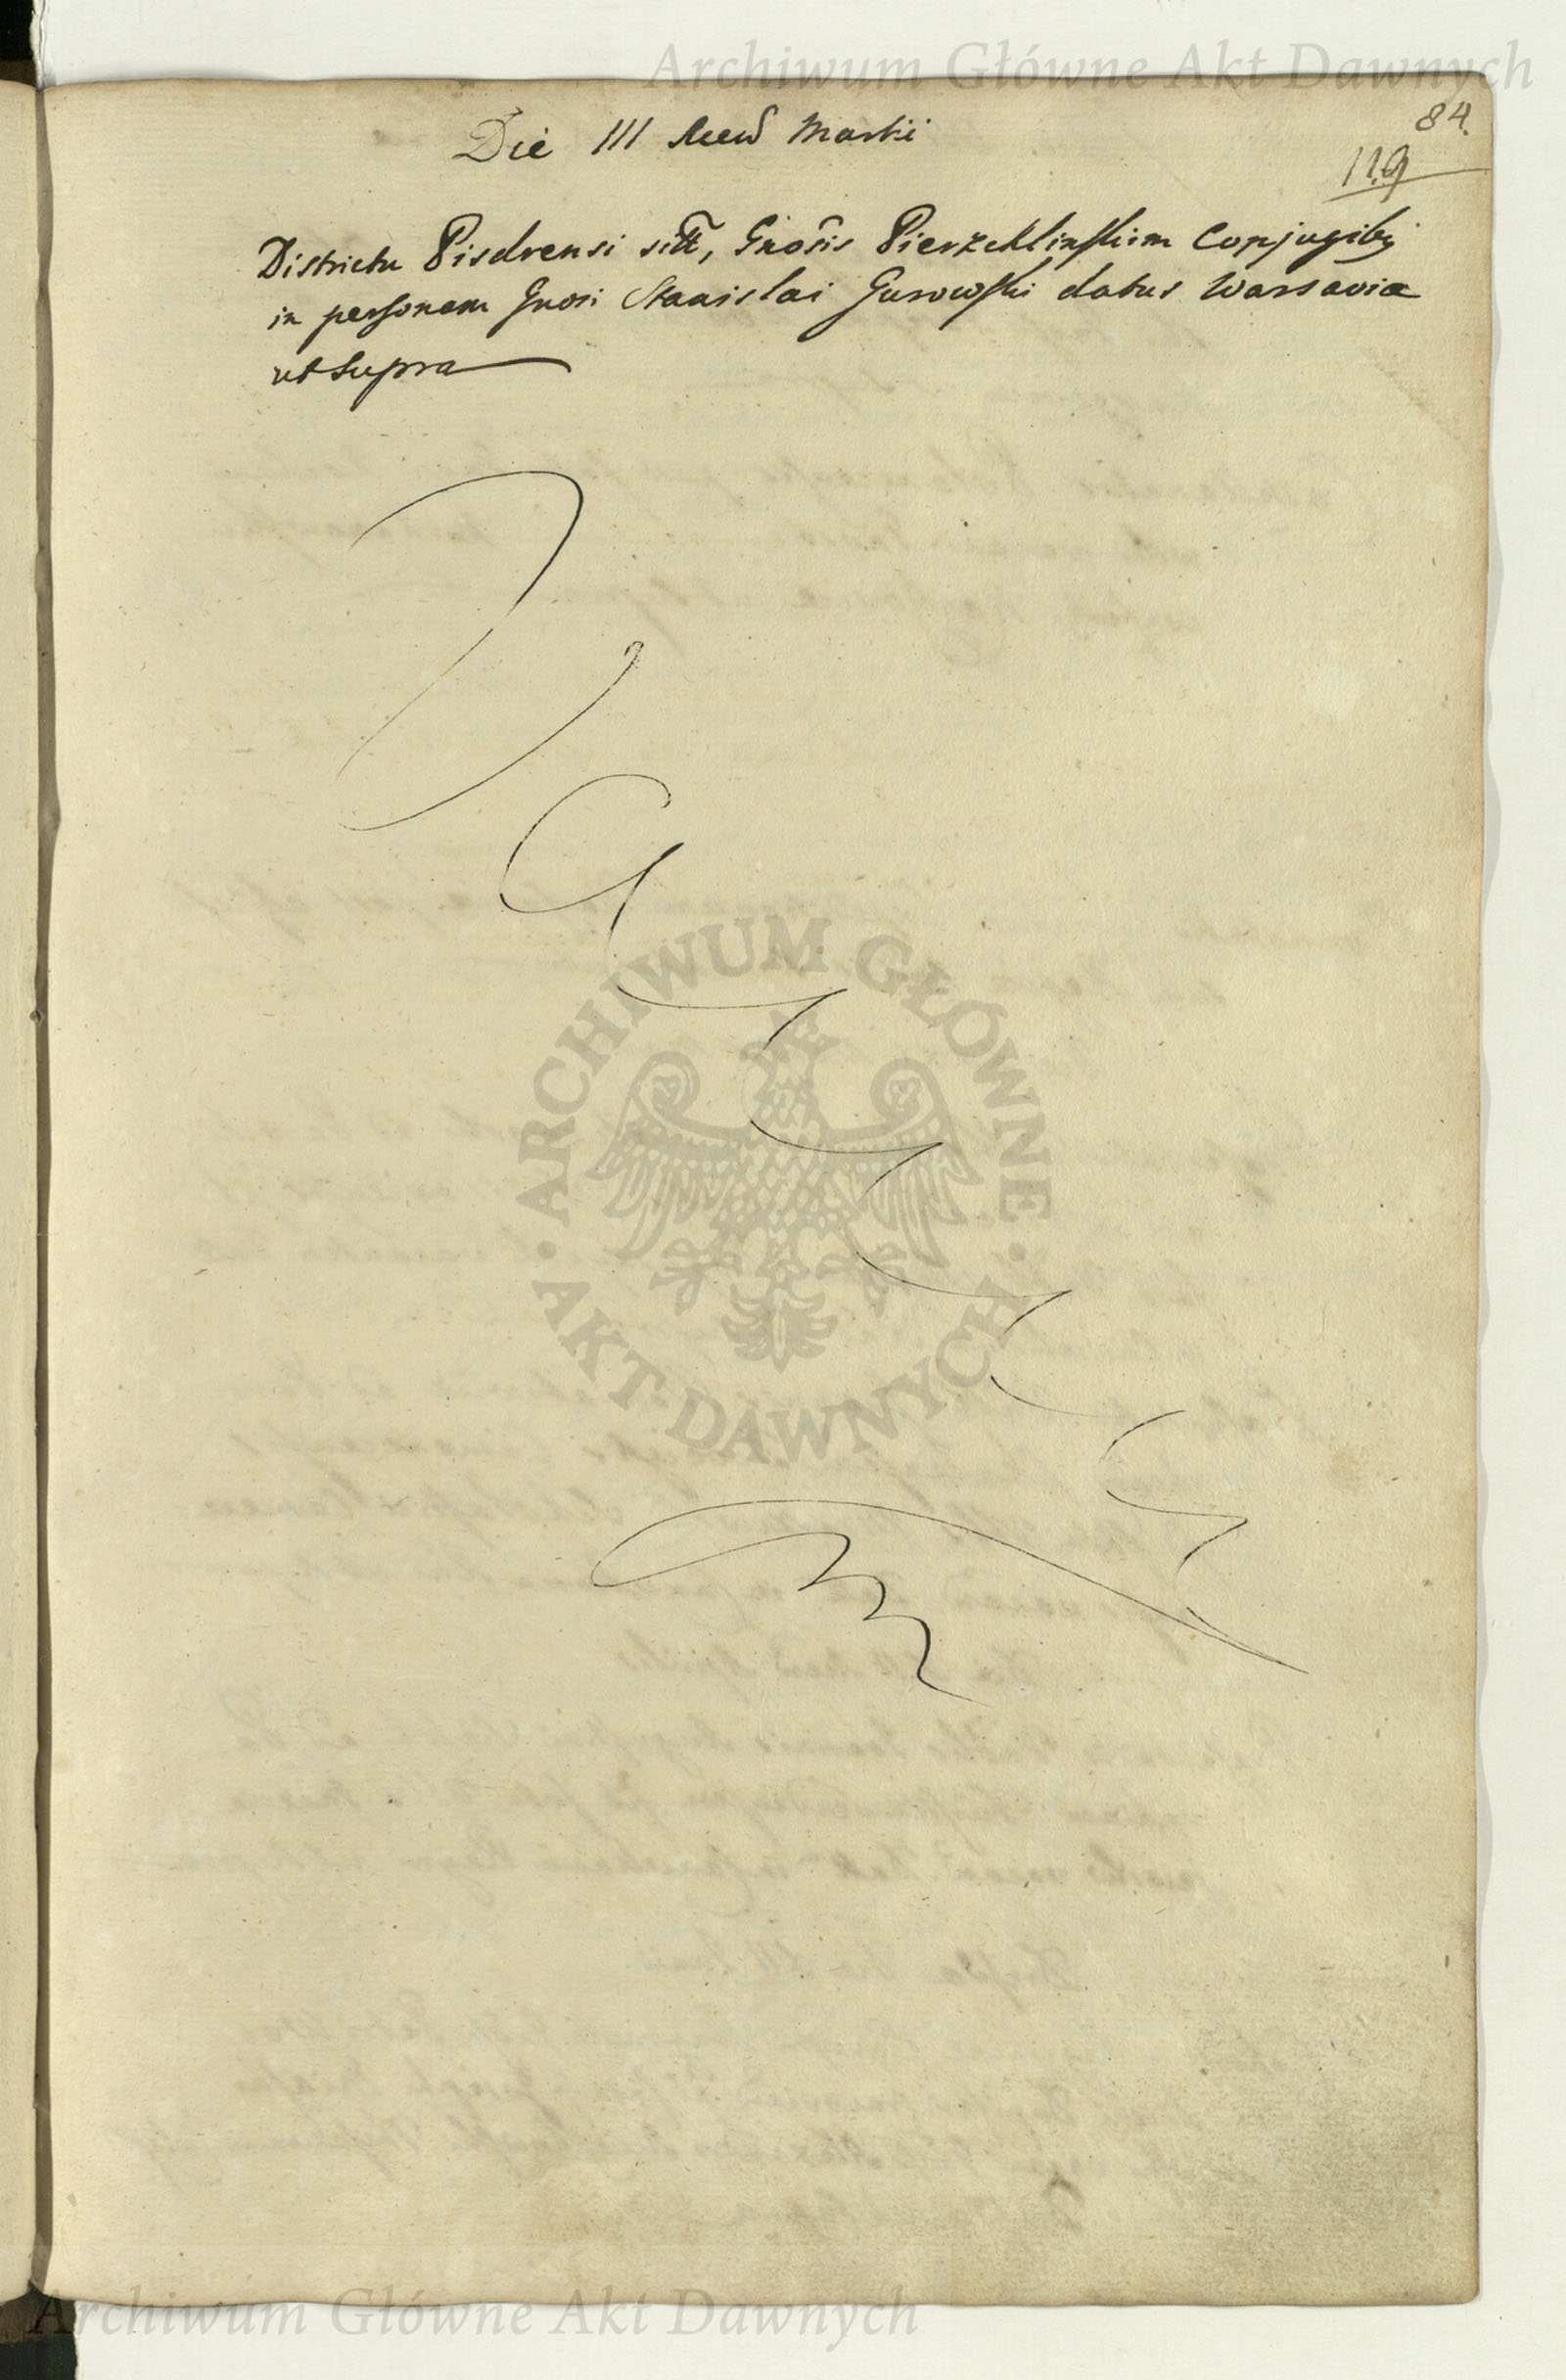 Archiwum Główne Akt Dawnych
84.
119
Die III Mens Martii
Districtu Pisdrensi sitt, Gnosis Pierzchlinskim Conjugibq
in personam Gnosi Stanislai Gurowski datus Warsaviæ
ut Supra
ARCHIWUM GŁÓWNE
AKT DAWNYCH
Archiwum Główne Akt Dawnych